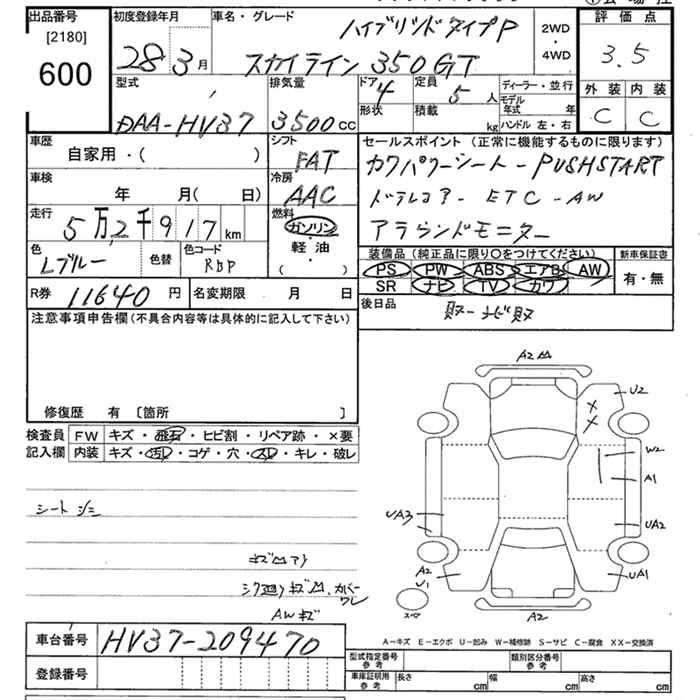 出品番号
[2180]
600
初度登録年月
28 3月
車名・グレード
ハイブリッド タイプP
スカイライン 350GT
2WD
・
4WD
評価点
3.5
外装 内装
C C
型式
DAA-HV37
排気量
3500cc
ドア 4
形状
定員 5人
積載 kg
ディーラー・並行
モデル年式 年
ハンドル 左・右
車歴
自家用・( )
シフト
FAT
車検
年 月( 日)
冷房
AAC
走行
5万2千917km
燃料
ガソリン
・
軽・油
( )
色
Lブルー
色替
色コード
RBP
R券 11640円
名変期限 月 日
セールスポイント(正常に機能するものに限ります)
カワパワーシート-PUSHSTART
ドラレコア- ETC-AW
アラウンドモニター
装備品(純正品に限り〇をつけてください)
PS PW ABS エアB AW
SR ナビ TV カワ
新車保証書
有・無
後日品
取-ナビ取
注意事項申告欄(不具合内容等は具体的に記入して下さい)
修復歴 有 〔箇所 〕
検査員記入欄
FW キズ・飛石・ヒビ割・リペア跡・×要
内装 キズ・汚レ・コゲ・穴・スレ・キレ・破レ
シートシミ
キズ
カバーワレ
AWキズ
A2
U2
W2
A1
UA3
UA2
A2
U1
UA1
スペア
A2
A-キズ E-エクボ U-凹み W-補修跡 S-サビ C-腐食 XX-交換済
車台番号
HV37-209470
登録番号
型式指定番号
参考
類別区分番号
参考
車庫証明用
参考
長さ cm 幅 cm 高さ cm